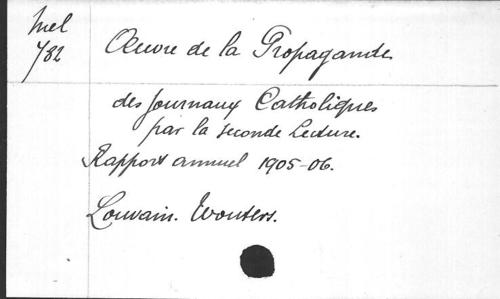 Mel
782
Œuvre de la Propagande
des journaux Catholiques
par la seconde Lecture.
Rapport annuel 1905-06.
Louvain. Wouters.